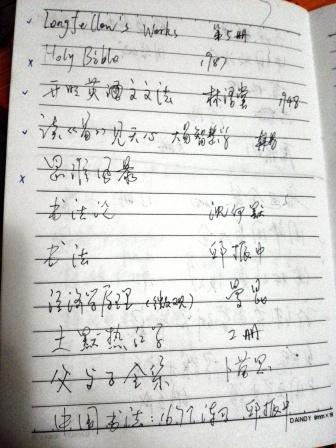 Longfellow's Works 第5册
Holy Bible 1987
开明英文文法 林语堂 1948
读《易》见天心 大易智慧学
思维风暴
书法论 沈尹默
书法 邱振中
经济学原理（微观） 曼昆
土默热红学 2册
父与子全集 卜劳恩
中国书法：167个练习 邱振中
DAINDY 8mm×